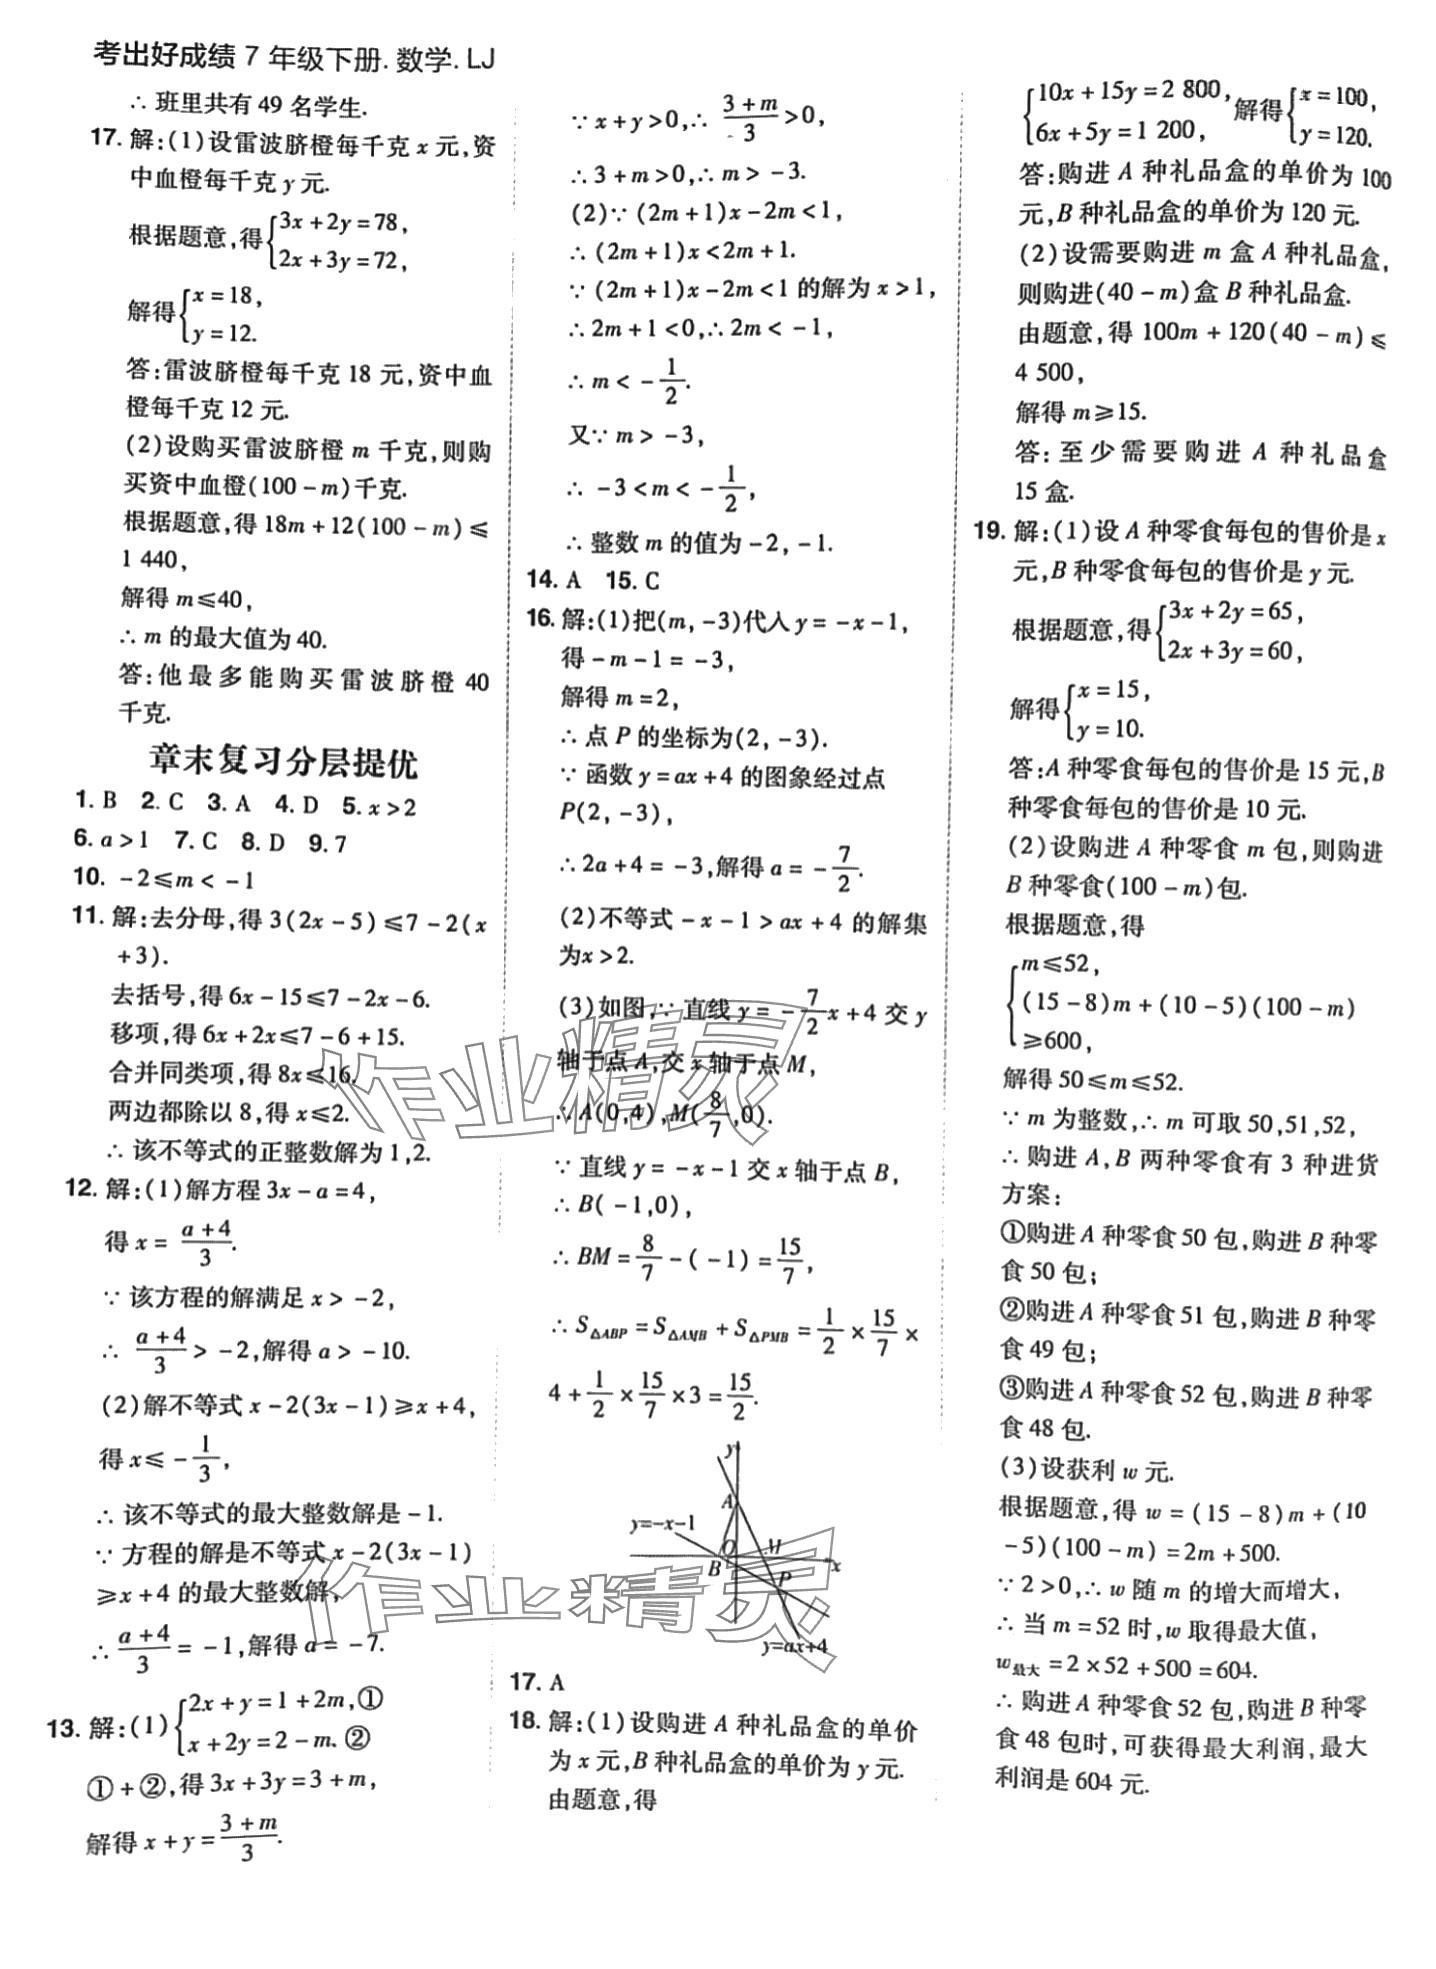 考出好成绩 7 年级下册. 数学. LJ
∴ 班里共有 49 名学生.
17. 解:(1)设雷波脐橙每千克 x 元,资
中血橙每千克 y 元.
根据题意,得{3x+2y=78,
2x+3y=72,
解得{x=18,
y=12.
答:雷波脐橙每千克 18 元,资中血
橙每千克 12 元.
(2)设购买雷波脐橙 m 千克,则购
买资中血橙(100-m)千克.
根据题意,得 18m+12(100-m)≤
1 440,
解得 m≤40,
∴ m 的最大值为 40.
答:他最多能购买雷波脐橙 40
千克.
章末复习分层提优
1. B 2. C 3. A 4. D 5. x>2
6. a>1 7. C 8. D 9. 7
10. -2≤m<-1
11. 解:去分母,得 3(2x-5)≤7-2(x
+3).
去括号,得 6x-15≤7-2x-6.
移项,得 6x+2x≤7-6+15.
合并同类项,得 8x≤16.
两边都除以 8,得 x≤2.
∴ 该不等式的正整数解为 1,2.
12. 解:(1)解方程 3x-a=4,
得 x=(a+4)/3.
∵ 该方程的解满足 x>-2,
∴ (a+4)/3>-2,解得 a>-10.
(2)解不等式 x-2(3x-1)≥x+4,
得 x≤-1/3,
∴ 该不等式的最大整数解是-1.
∵ 方程的解是不等式 x-2(3x-1)
≥x+4 的最大整数解,
∴ (a+4)/3=-1,解得 a=-7.
13. 解:(1){2x+y=1+2m,①
x+2y=2-m.②
①+②,得 3x+3y=3+m,
解得 x+y=(3+m)/3.
∵ x+y>0,∴ (3+m)/3>0,
∴ 3+m>0,∴ m>-3.
(2)∵ (2m+1)x-2m<1,
∴ (2m+1)x<2m+1.
∵ (2m+1)x-2m<1 的解为 x>1,
∴ 2m+1<0,∴ 2m<-1,
∴ m<-1/2.
又∵ m>-3,
∴ -3<m<-1/2,
∴ 整数 m 的值为-2,-1.
14. A 15. C
16. 解:(1)把(m,-3)代入 y=-x-1,
得-m-1=-3,
解得 m=2,
∴ 点 P 的坐标为(2,-3).
∵ 函数 y=ax+4 的图象经过点
P(2,-3),
∴ 2a+4=-3,解得 a=-7/2.
(2)不等式-x-1>ax+4 的解集
为x>2.
(3)如图,∵ 直线 y=-7/2x+4 交 y
轴于点 A,交 x 轴于点 M,
∴ A(0,4),M(8/7,0).
∵ 直线 y=-x-1 交 x 轴于点 B,
∴ B(-1,0),
∴ BM=8/7-(-1)=15/7,
∴ S△ABP=S△AMB+S△PMB=1/2×15/7×
4+1/2×15/7×3=15/2.
y
A
y=-x-1
O
M
x
B
P
y=ax+4
17. A
18. 解:(1)设购进 A 种礼品盒的单价
为 x 元,B 种礼品盒的单价为 y 元.
由题意,得
{10x+15y=2 800,
6x+5y=1 200,
解得{x=100,
y=120.
答:购进 A 种礼品盒的单价为 100
元,B 种礼品盒的单价为 120 元.
(2)设需要购进 m 盒 A 种礼品盒,
则购进(40-m)盒 B 种礼品盒.
由题意,得 100m+120(40-m)≤
4 500,
解得 m≥15.
答:至少需要购进 A 种礼品盒
15 盒.
19. 解:(1)设 A 种零食每包的售价是 x
元,B 种零食每包的售价是 y 元.
根据题意,得{3x+2y=65,
2x+3y=60,
解得{x=15,
y=10.
答:A 种零食每包的售价是 15 元,B
种零食每包的售价是 10 元.
(2)设购进 A 种零食 m 包,则购进
B 种零食(100-m)包.
根据题意,得
{m≤52,
(15-8)m+(10-5)(100-m)
≥600,
解得 50≤m≤52.
∵ m 为整数,∴ m 可取 50,51,52,
∴ 购进 A,B 两种零食有 3 种进货
方案:
①购进 A 种零食 50 包,购进 B 种零
食 50 包;
②购进 A 种零食 51 包,购进 B 种零
食 49 包;
③购进 A 种零食 52 包,购进 B 种零
食 48 包.
(3)设获利 w 元.
根据题意,得 w=(15-8)m+(10
-5)(100-m)=2m+500.
∵ 2>0,∴ w 随 m 的增大而增大,
∴ 当 m=52 时,w 取得最大值,
w最大=2×52+500=604.
∴ 购进 A 种零食 52 包,购进 B 种零
食 48 包时,可获得最大利润,最大
利润是 604 元.
作业精灵
作业精灵